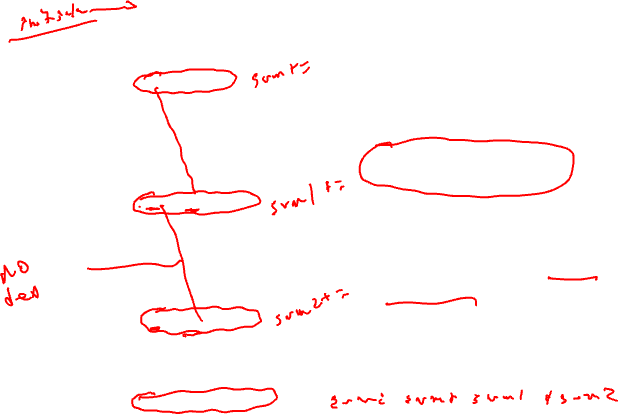 sum+=
sum1+=
NO
dep
sum2+=
sum= sum+ sum1 + sum2